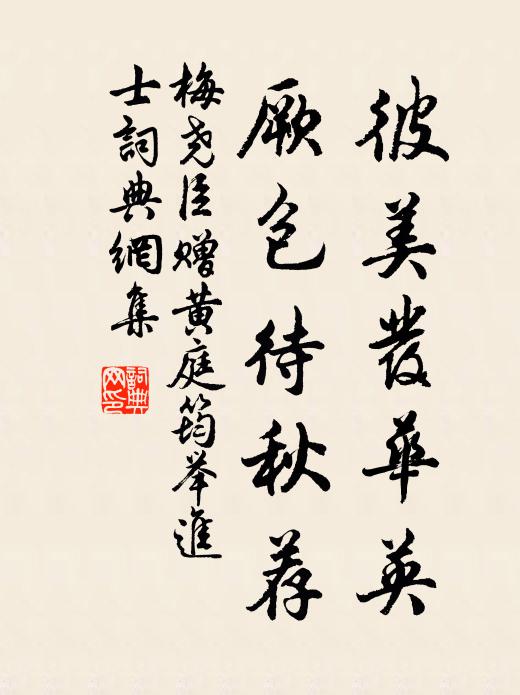 彼美發華英
厥包待秋荐
梅尧臣赠黄庭筠举進
士詞典網集
詞典网印